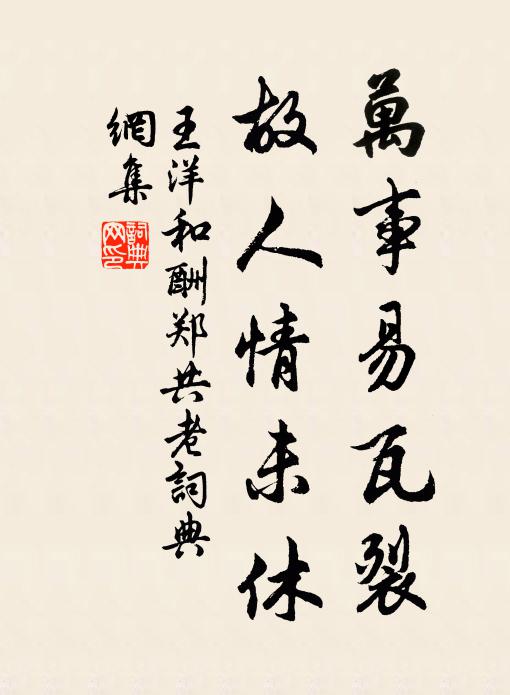 萬事易瓦裂
故人情未休
王洋和酬郑共老詞典
網集
詞典
网印